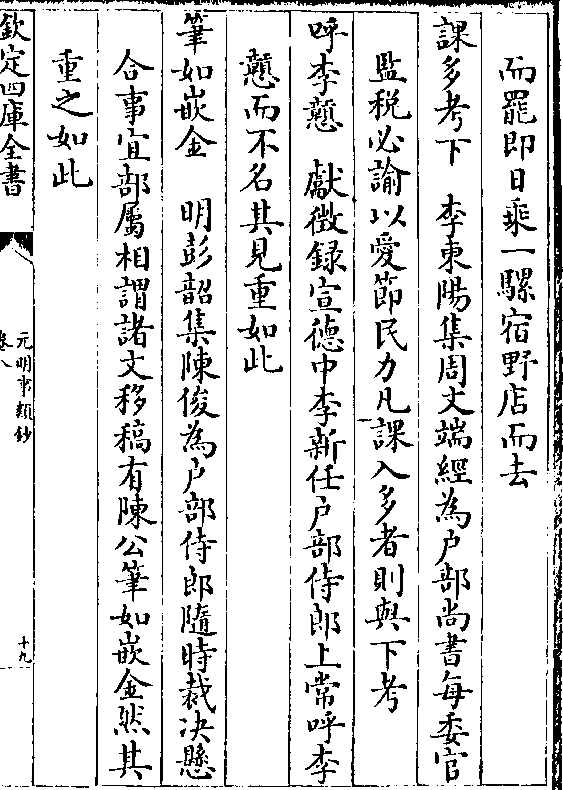 而罷即日乘一騾宿野店而去
課多考下　李東陽集周文端經為户部尚書每委官
監税必諭以愛節民力凡課入多者則與下考
呼李戇　獻徵録宣德中李新任户部侍郎上常呼李
戇而不名其見重如此
筆如嵌金　明彭韶集陳俊為户部侍郎隨時裁决懸
合事宜部屬相謂諸文移稿有陳公筆如嵌金然其
重之如此
欽定四庫全書
元明事類鈔
卷八
十九